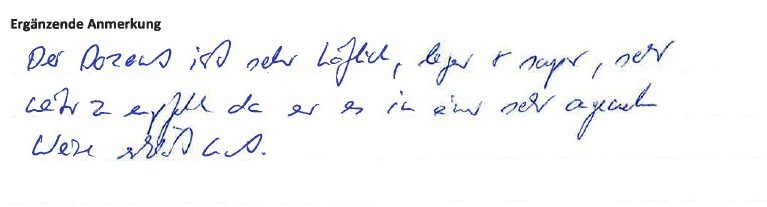 Ergänzende Anmerkung
Der Dozent ist sehr höflich, leger + super, sehr
weiter zu empfehlen da er es in einer sehr angenehmen
Weise erklärt hat.